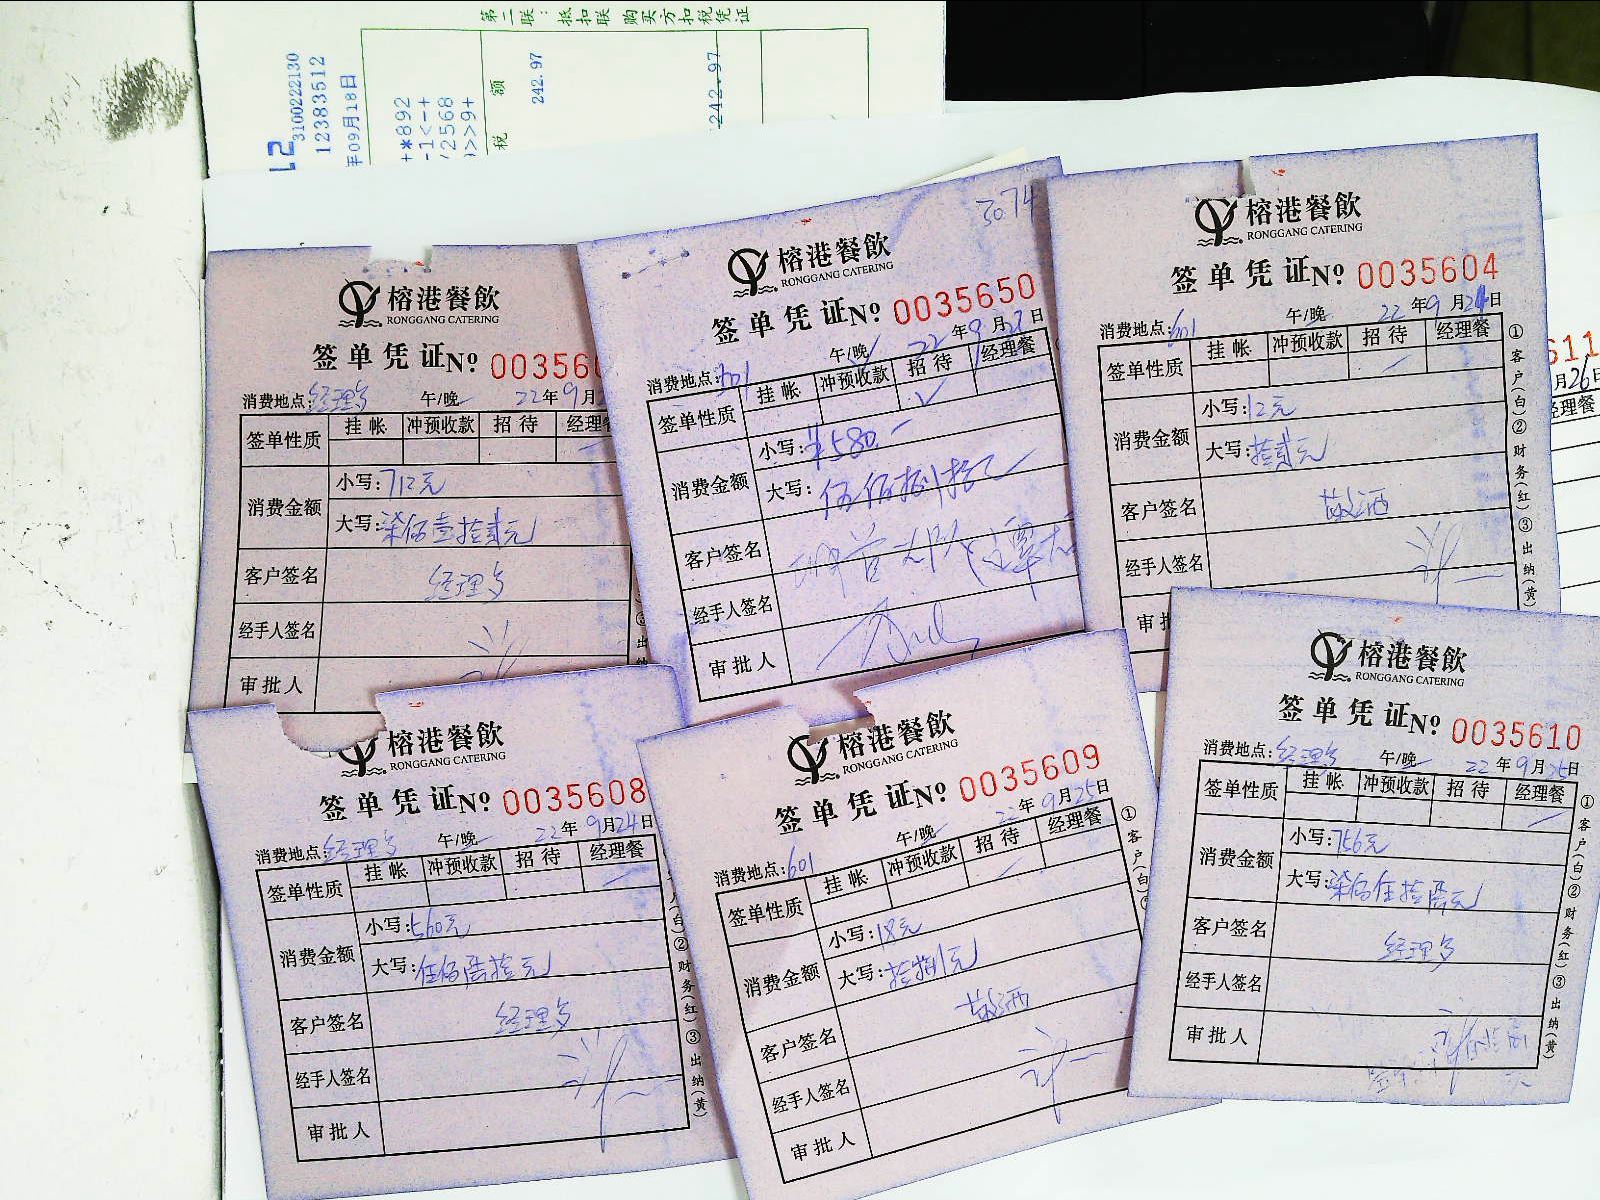 第二联：抵扣联 购买方扣税凭证
3100222130
12383512
年09月18日
+*892
-1<-+
/2568
>>9+
税 额
242.97
242.97
榕港餐飲
RONGGANG CATERING
签单凭证№ 003560
消费地点: 午/晚 22年9月
签单性质 挂帐 冲预收款 招待 经理餐
消费金额 小写:712元
大写:柒佰壹拾贰元
客户签名 经理
经手人签名
审批人
3074
榕港餐飲
RONGGANG CATERING
签单凭证№ 0035650
消费地点: 午/晚 22年9月27日
签单性质 挂帐 冲预收款 招待 经理餐
消费金额 小写:¥580
大写:伍佰捌拾元
客户签名
经手人签名
审批人
榕港餐飲
RONGGANG CATERING
签单凭证№ 0035604
消费地点:601 午/晚 22年9月24日
签单性质 挂帐 冲预收款 招待 经理餐
消费金额 小写:12元
大写:拾贰元
客户签名 敬酒
经手人签名
审批
①客户(白)②财务(红)③出纳(黄)
611
月26日
经理餐
榕港餐飲
RONGGANG CATERING
签单凭证№ 0035608
消费地点:经理 午/晚 22年9月24日
签单性质 挂帐 冲预收款 招待 经理餐
消费金额 小写:560元
大写:伍佰陆拾元
客户签名 经理
经手人签名
审批人
(白)②财务(红)③出纳(黄)
榕港餐飲
RONGGANG CATERING
签单凭证№ 0035609
消费地点:601 午/晚 22年9月25日
签单性质 挂帐 冲预收款 招待 经理餐
消费金额 小写:18元
大写:拾捌元
客户签名 敬酒
经手人签名
审批人
①客户(白)
榕港餐飲
RONGGANG CATERING
签单凭证№ 0035610
消费地点:经理 午/晚 22年9月25日
签单性质 挂帐 冲预收款 招待 经理餐
消费金额 小写:756元
大写:柒佰伍拾陆元
客户签名 经理
经手人签名
审批人
①客户(白)②财务(红)③出纳(黄)